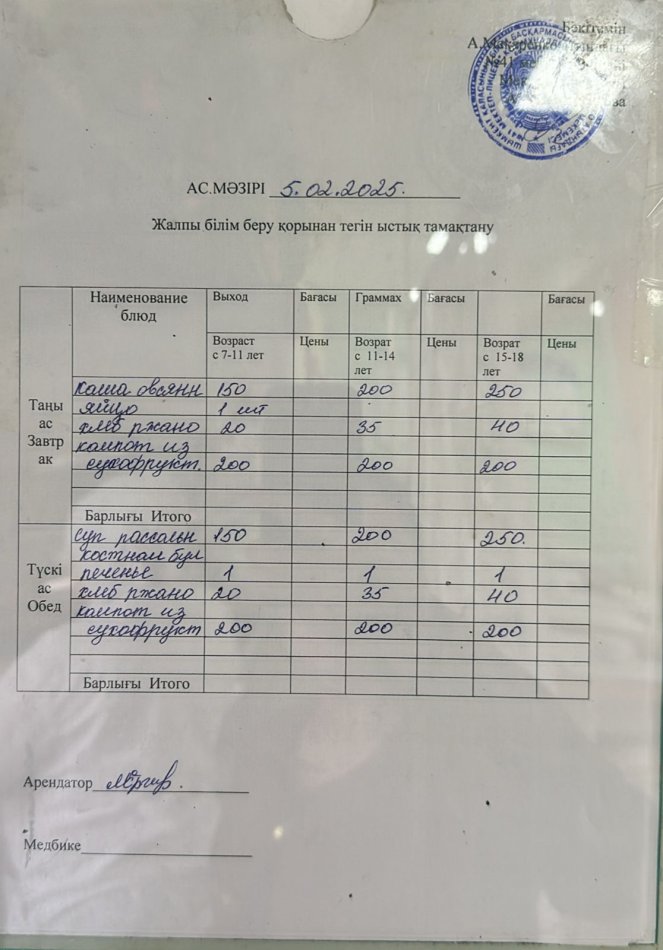 Бекітемін
А.Макаренко
№41
АС.МӘЗІРІ 5.02.2025.
Жалпы білім беру қорынан тегін ыстық тамақтану
Наименование блюд Выход Бағасы Граммах Бағасы Бағасы
Возраст с 7-11 лет Цены Возрат с 11-14 лет Цены Возрат с 15-18 лет Цены
Таңы ас Завтр ак
каша овсянн 150 200 250
яйцо 1 шт
хлеб ржано 20 35 40
компот из
сухофрукт. 200 200 200
Барлығы Итого
Түскі ас Обед
суп рассольн 150 200 250.
костном бул
печенье 1 1 1
хлеб ржано 20 35 40
компот из
сухофрукт 200 200 200
Барлығы Итого
Арендатор
Медбике